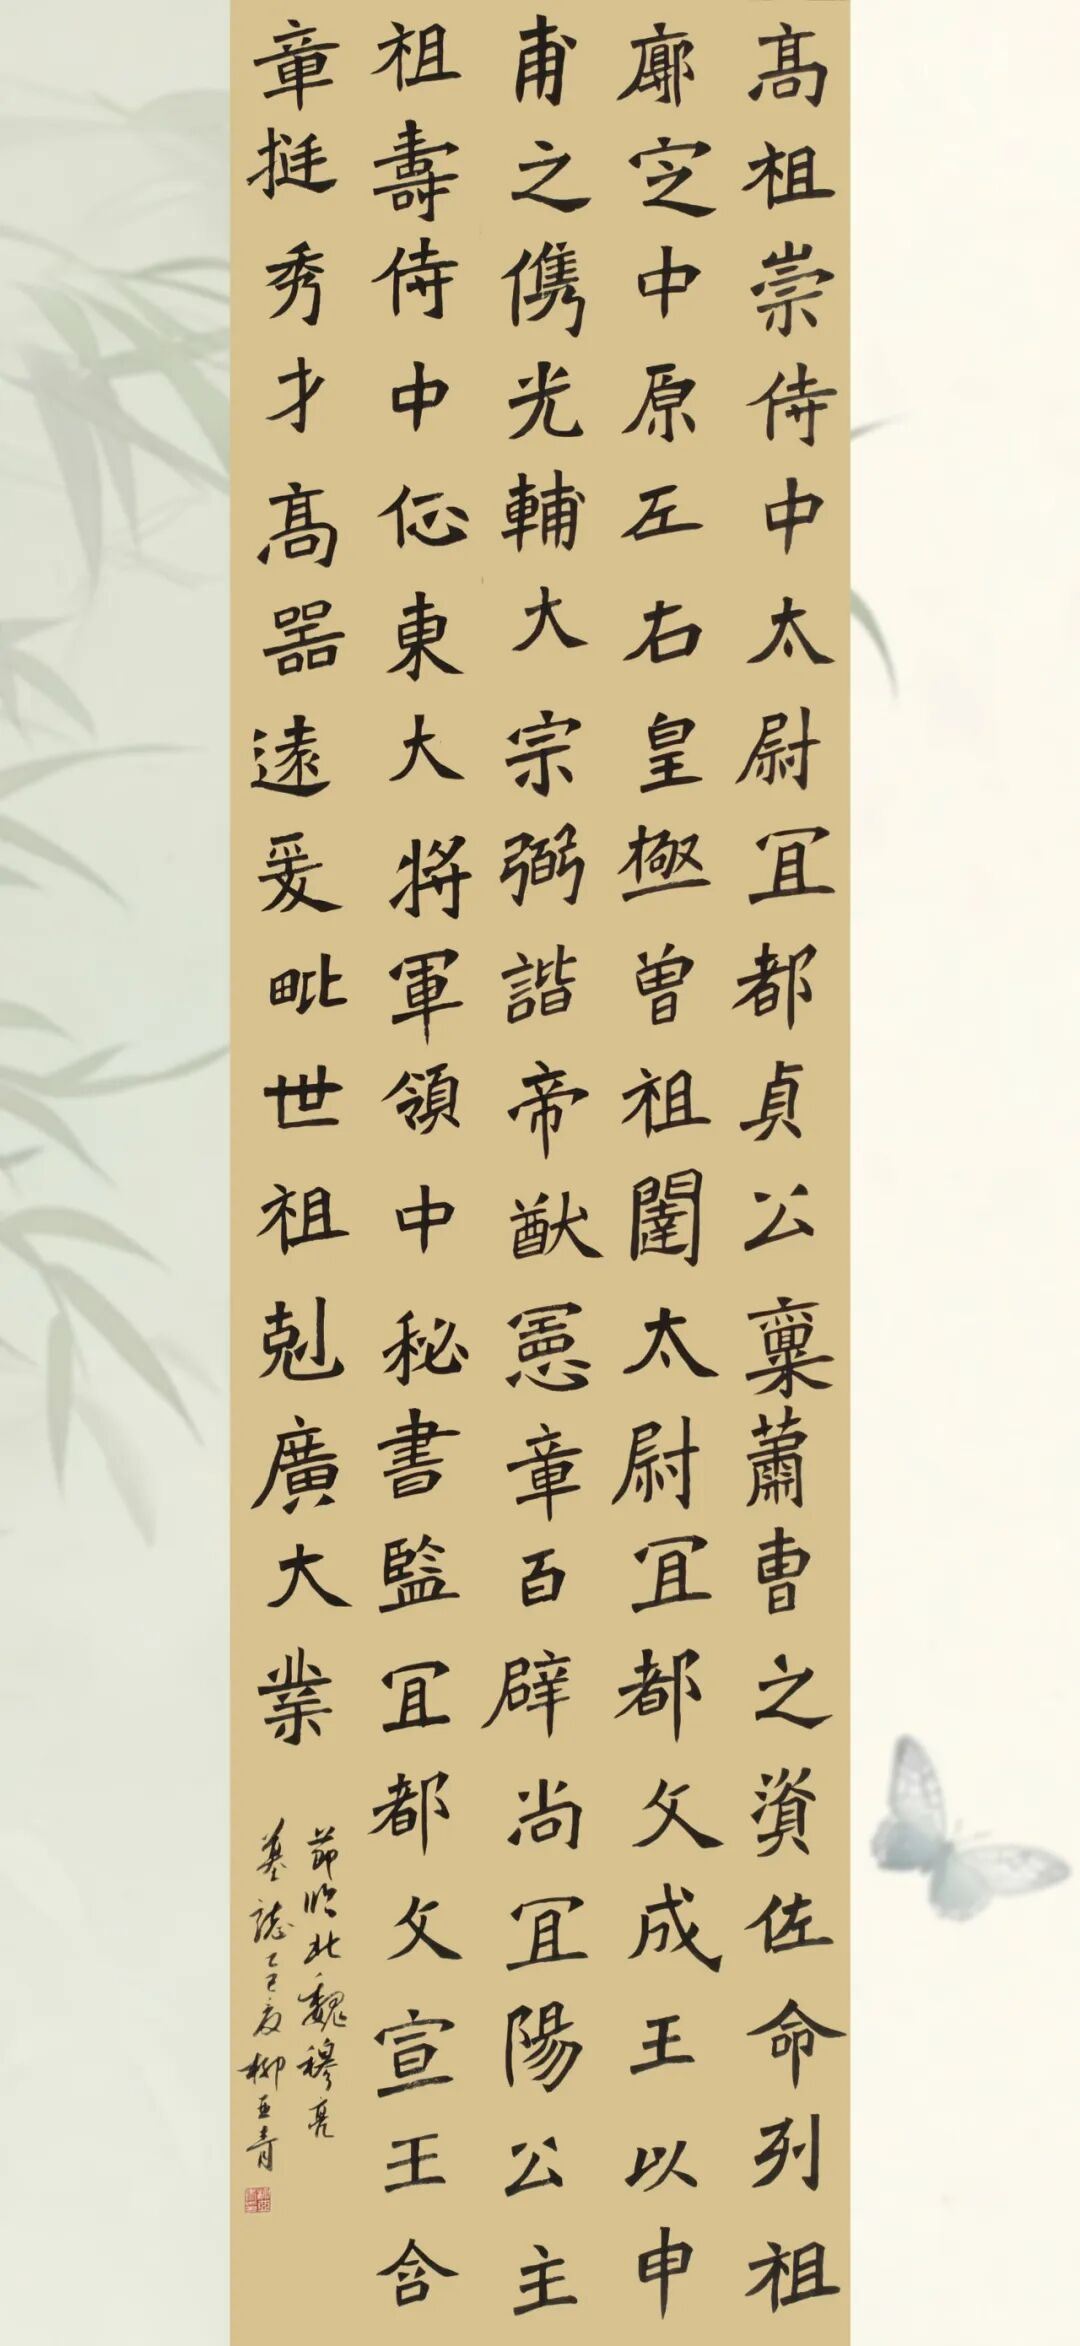 高祖崇侍中太尉冝都貞公稟蕭曹之資佐命列祖
廓定中原左右皇極曾祖闥太尉冝都文成王以申
甫之儁光輔大宗弼諧帝猷憲章百辟尚冝陽公主
祖壽侍中征東大將軍領中秘書監冝都文宣王含
章挺秀才高器遠爰毗世祖剋廣大業
節臨北魏穆亮
墓誌乙巳夏柳亚青